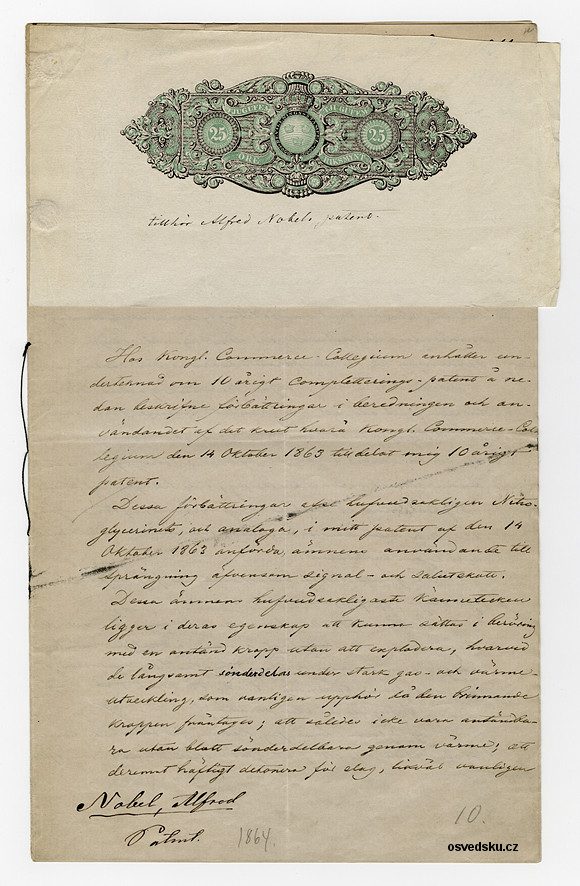 TJUGUFEM TJUGUFEM
25 25
ÖRE
tillhör Alfred Nobels patent.
Hos Kongl. Commerce-Collegium anhåller un-
dertecknad om 10 årigt Completterings-patent å ne-
dan beskrifne förbättringar i beredningen och an-
vändandet af det krut hvarå Kongl. Commerce-Col-
legium den 14 Oktober 1863 tilldelat mig 10 årigt
patent.
Dessa förbättringar afse hufvudsakligen Nitro-
glycerinets, och analoga, i mitt patent af den 14
Oktober 1863 anförda, ämnens användande till
sprängning äfvensom signal- och salutskott.
Dessa ämnens hufvudsakligaste kännetecken
ligger i deras egenskap att kunna sättas i beröring
med en antänd kropp utan att explodera, hvarvid
de långsamt sönderdelas under stark gas- och värme-
utveckling, som vanligen upphör då den brinnande
kroppen fråntages; att således icke vara antändba-
ra utan blott sönderdelbara genom värme; att
deremot häftigt detonera för slag, likväl vanligen
Nobel, Alfred
Patent. 1864. 10.
osvedsku.cz